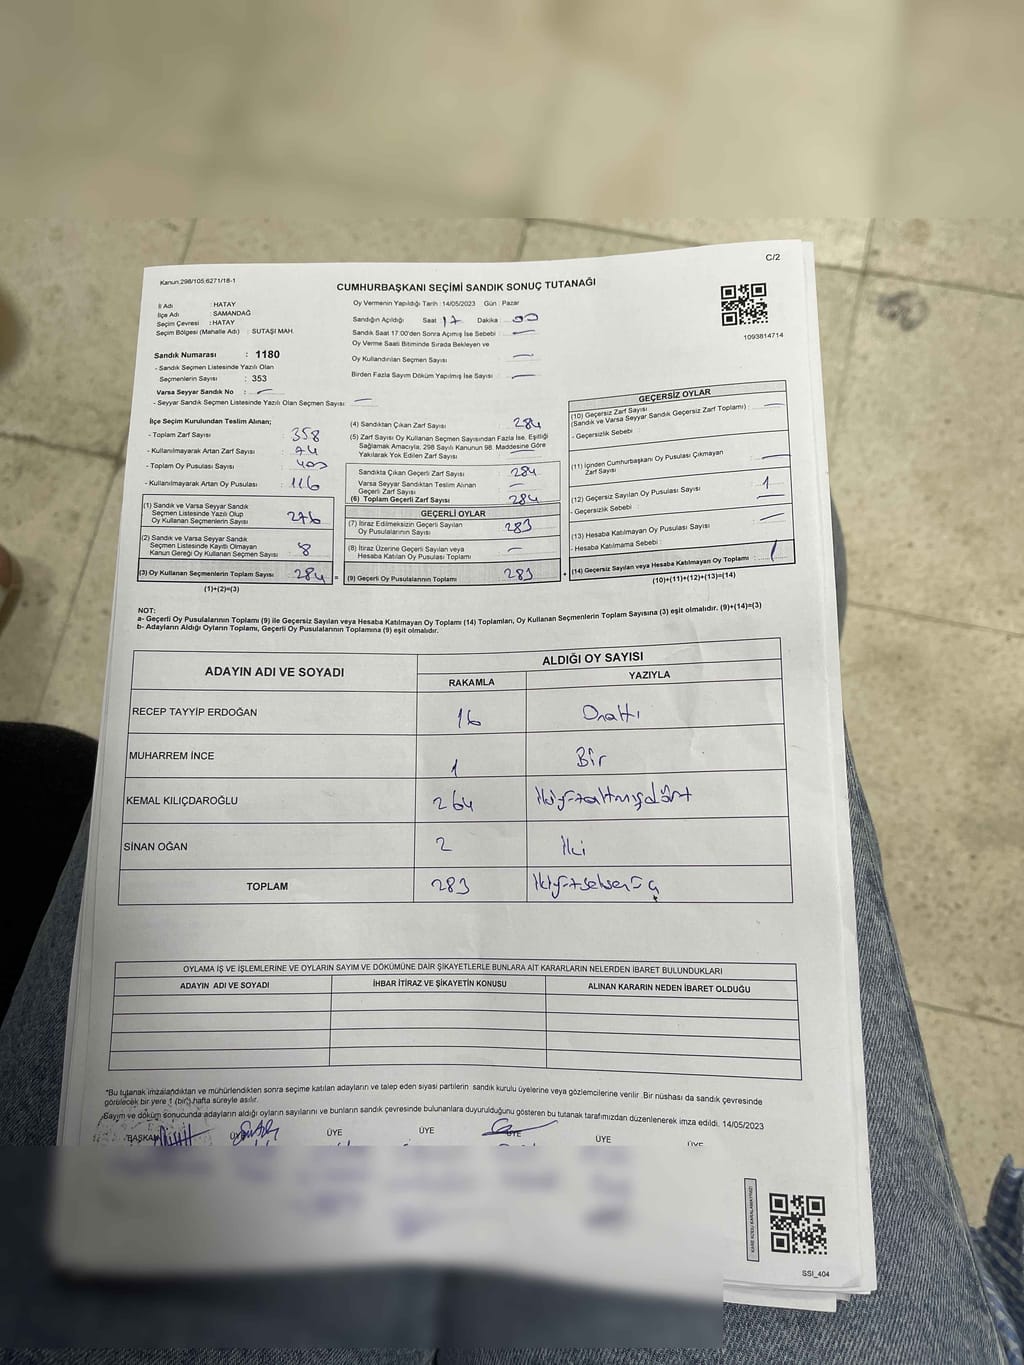 C/2
Kanun.298/105;6271/18-1
CUMHURBAŞKANI SEÇİMİ SANDIK SONUÇ TUTANAĞI
1093814714
İl Adı : HATAY
İlçe Adı : SAMANDAĞ
Seçim Çevresi : HATAY
Seçim Bölgesi (Mahalle Adı) : SUTAŞI MAH.
Sandık Numarası : 1180
- Sandık Seçmen Listesinde Yazılı Olan
Seçmenlerin Sayısı : 353
Varsa Seyyar Sandık No : —
- Seyyar Sandık Seçmen Listesinde Yazılı Olan Seçmen Sayısı : —
Oy Vermenin Yapıldığı Tarih : 14/05/2023 Gün : Pazar
Sandığın Açıldığı Saat 17 Dakika : 00
Sandık Saat 17:00'den Sonra Açımış İse Sebebi : —
Oy Verme Saati Bitiminde Sırada Bekleyen ve
Oy Kullandırılan Seçmen Sayısı —
Birden Fazla Sayım Döküm Yapılmış İse Sayısı : —
İlçe Seçim Kurulundan Teslim Alınan;
- Toplam Zarf Sayısı : 358
- Kullanılmayarak Artan Zarf Sayısı : 74
- Toplam Oy Pusulası Sayısı : 400
- Kullanılmayarak Artan Oy Pusulası : 116
(1) Sandık ve Varsa Seyyar Sandık
Seçmen Listesinde Yazılı Olup
Oy Kullanan Seçmenlerin Sayısı : 276
(2) Sandık ve Varsa Seyyar Sandık
Seçmen Listesinde Kayıtlı Olmayan
Kanun Gereği Oy Kullanan Seçmen Sayısı : 8
(3) Oy Kullanan Seçmenlerin Toplam Sayısı : 284 =
(1)+(2)=(3)
(4) Sandıktan Çıkan Zarf Sayısı : 284
(5) Zarf Sayısı Oy Kullanan Seçmen Sayısından Fazla İse, Eşitliği
Sağlamak Amacıyla, 298 Sayılı Kanunun 98. Maddesine Göre
Yakılarak Yok Edilen Zarf Sayısı : —
Sandıkta Çıkan Geçerli Zarf Sayısı : 284
Varsa Seyyar Sandıktan Teslim Alınan
Geçerli Zarf Sayısı : —
(6) Toplam Geçerli Zarf Sayısı : 284
GEÇERLİ OYLAR
(7) İtiraz Edilmeksizin Geçerli Sayılan
Oy Pusulalarının Sayısı : 283
(8) İtiraz Üzerine Geçerli Sayılan veya
Hesaba Katılan Oy Pusulası Toplamı : —
(9) Geçerli Oy Pusulalarının Toplamı : 283 +
GEÇERSİZ OYLAR
(10) Geçersiz Zarf Sayısı
(Sandık ve Varsa Seyyar Sandık Geçersiz Zarf Toplamı) : —
- Geçersizlik Sebebi :
(11) İçinden Cumhurbaşkanı Oy Pusulası Çıkmayan
Zarf Sayısı : —
(12) Geçersiz Sayılan Oy Pusulası Sayısı : 1
- Geçersizlik Sebebi : —
(13) Hesaba Katılmayan Oy Pusulası Sayısı : —
- Hesaba Katılmama Sebebi :
(14) Geçersiz Sayılan veya Hesaba Katılmayan Oy Toplamı : 1
(10)+(11)+(12)+(13)=(14)
NOT:
a- Geçerli Oy Pusulalarının Toplamı (9) ile Geçersiz Sayılan veya Hesaba Katılmayan Oy Toplamı (14) Toplamları, Oy Kullanan Seçmenlerin Toplam Sayısına (3) eşit olmalıdır. (9)+(14)=(3)
b- Adayların Aldığı Oyların Toplamı, Geçerli Oy Pusulalarının Toplamına (9) eşit olmalıdır.
ADAYIN ADI VE SOYADI
ALDIĞI OY SAYISI
RAKAMLA YAZIYLA
RECEP TAYYİP ERDOĞAN 16 Onaltı
MUHARREM İNCE 1 Bir
KEMAL KILIÇDAROĞLU 264 ikiyüzaltmışdört
SİNAN OĞAN 2 iki
TOPLAM 283 ikiyüzseksenüç
OYLAMA İŞ VE İŞLEMLERİNE VE OYLARIN SAYIM VE DÖKÜMÜNE DAİR ŞİKAYETLERLE BUNLARA AİT KARARLARIN NELERDEN İBARET BULUNDUKLARI
ADAYIN ADI VE SOYADI İHBAR İTİRAZ VE ŞİKAYETİN KONUSU ALINAN KARARIN NEDEN İBARET OLDUĞU
*Bu tutanak imzalandıktan ve mühürlendikten sonra seçime katılan adayların ve talep eden siyasi partilerin sandık kurulu üyelerine veya gözlemcilerine verilir. Bir nüshası da sandık çevresinde
görülecek bir yere 1 (bir) hafta süreyle asılır.
Sayım ve döküm sonucunda adayların aldığı oyların sayılarını ve bunların sandık çevresinde bulunanlara duyurulduğunu gösteren bu tutanak tarafımızdan düzenlenerek imza edildi. 14/05/2023
BAŞKAN ÜYE ÜYE ÜYE ÜYE ÜYE
SSİ_404